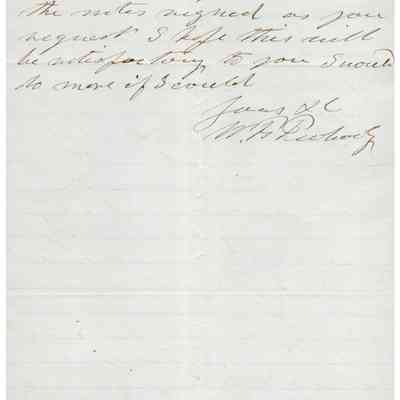 the notes signed as you
request I hope this will
be satisfactory to you I would
do more if I could
Yours &c
W. H. Peabody